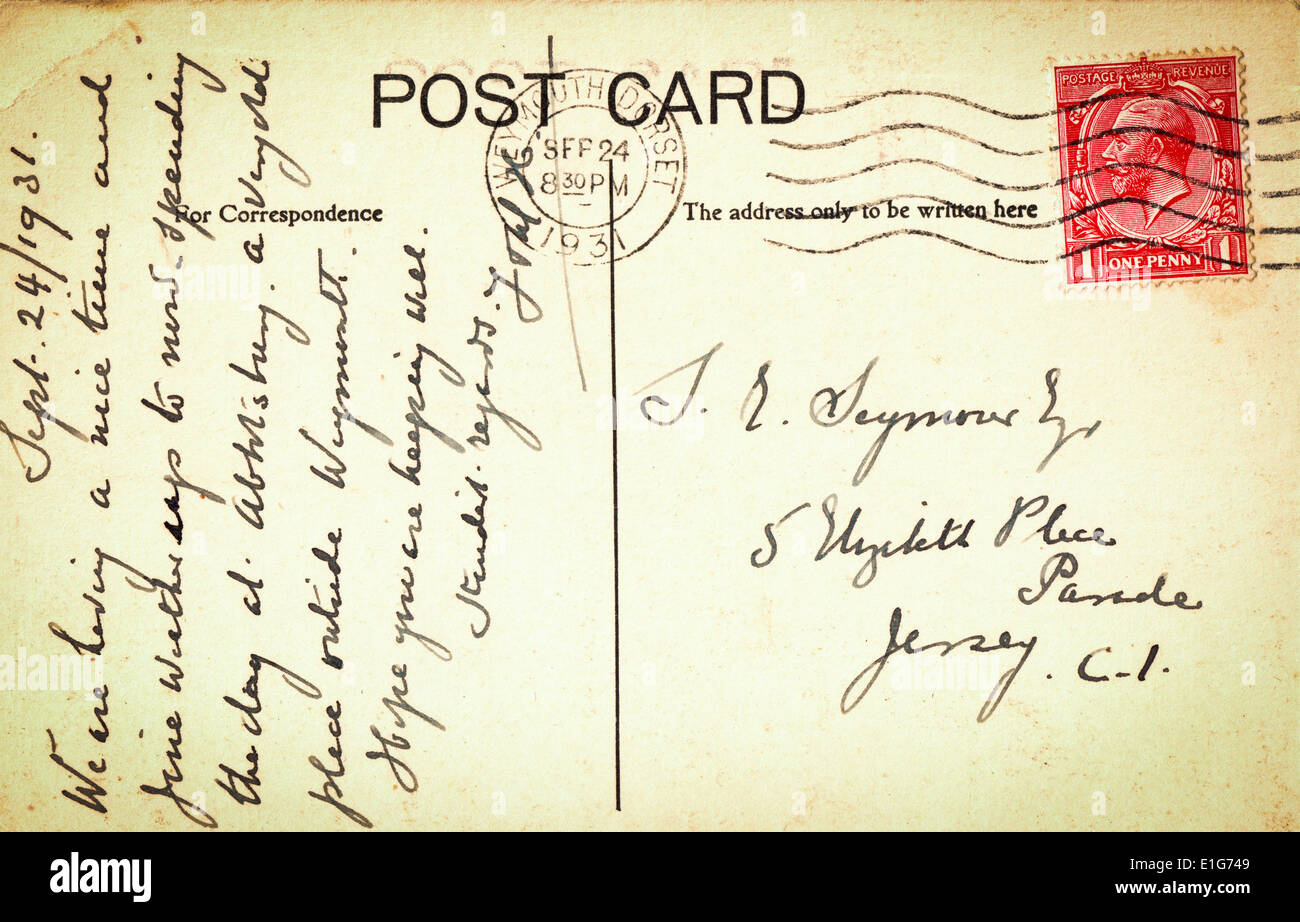 POST CARD
WEYMOUTH DORSET
SEP 24
8 30 PM
1931
POSTAGE REVENUE
1 ONE PENNY 1
For Correspondence
The address only to be written here
Sept. 24/1931.
We are having a nice time and
fine weather up to now. Spending
the day at Abbotsbury. a very old
place outside Weymouth.
Hope you are keeping well.
Kindest regards.
Seymour Esq
5 Elizabeth Place
Parade
Jersey. C.I.
alamy
alamy
Image ID: E1G749
www.alamy.com